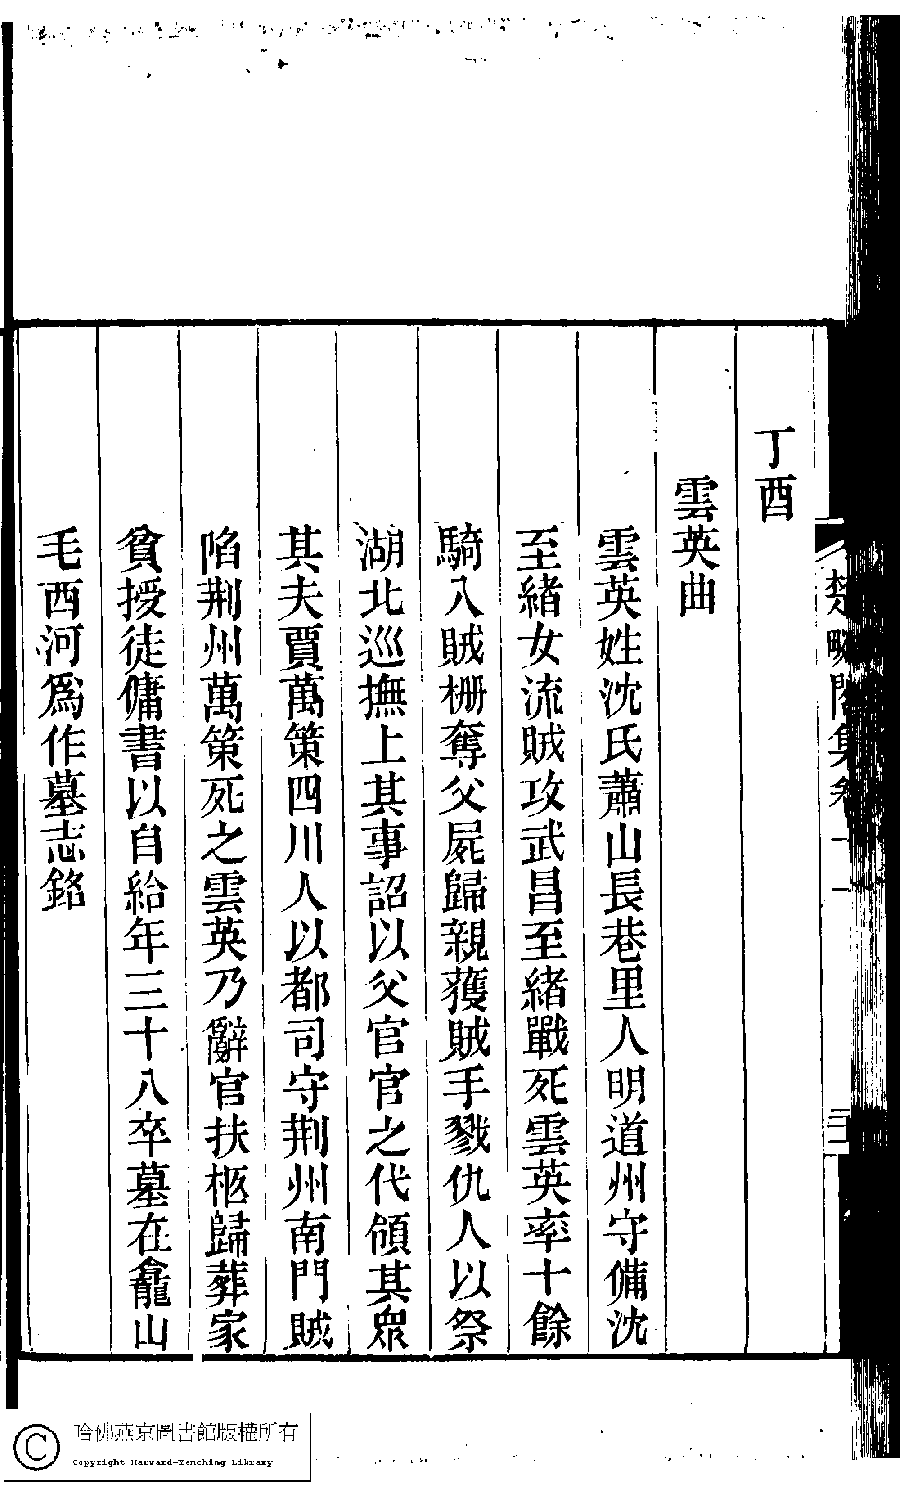 丁酉
雲英曲
雲英姓沈氏蕭山長巷里人明道州守備沈
至緒女流賊攻武昌至緒戰死雲英率十餘
騎入賊柵奪父屍歸親獲賊手戮仇人以祭
湖北巡撫上其事詔以父官官之代領其衆
其夫賈萬策四川人以都司守荆州南門賊
陷荆州萬策死之雲英乃辭官扶柩歸葬家
貧授徒傭書以自給年三十八卒墓在龕山
毛西河爲作墓志銘
哈佛燕京圖書館版權所有
Copyright Harvard-Yenching Library